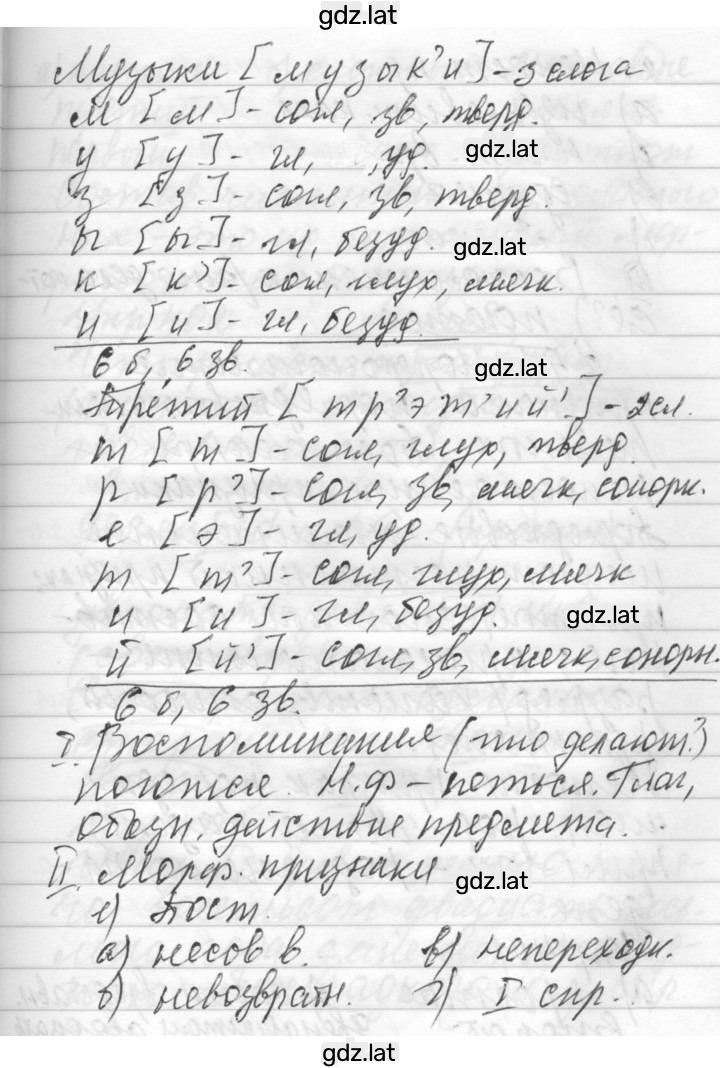 gdz.lat
Музыки [музык'и] - 3 слога
м [м] - согл, зв, тверд.
у [у] - гл, , уд.
gdz.lat
з [з] - согл, зв, тверд.
ы [ы] - гл, безуд.
gdz.lat
к [к'] - согл, глух, мягк.
и [и] - гл, безуд.
6 б, 6 зв.
gdz.lat
Третий [тр'эт'ий'] - 2 сл.
т [т] - согл, глух, тверд
р [р'] - согл, зв, мягк, сонорн.
е [э] - гл, уд.
т [т'] - согл, глух, мягк
и [и] гл, безуд.
gdz.lat
й [й'] - согл, зв, мягк, сонорн.
6 б, 6 зв.
I. Воспоминания (что делают?)
поются. Н.ф - петься. Глаг,
обозн. действие предмета.
II. Морф. признаки
gdz.lat
1) Пост.
а) несов в. в) непереходн.
б) невозвратн. г) I спр.
gdz.lat